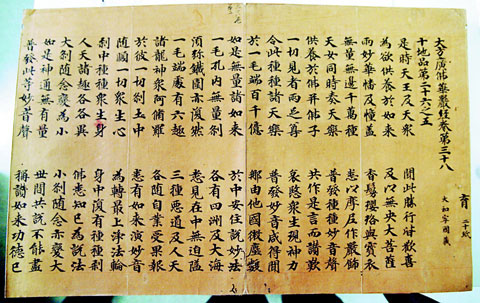 大方廣佛華嚴經卷第三十八
育 二十紙
大和寧國藏
十地品第二十六之五
是時天王及天眾 聞此勝行皆歡喜
為欲供養於如來 及以無央大菩薩
雨妙華幡及幢蓋 香鬘瓔珞與寶衣
無量無邊千萬種 悉以摩尼作嚴飾
天女同時奏天樂 普發種種妙音聲
供養於佛并佛子 共作是言而讚歎
一切見者兩足尊 哀愍眾生現神力
令此種種諸天樂 普發妙音咸得聞
於一毛端百千億 那由他國微塵數
如是無量諸如來 於中安住說妙法
一毛孔內無量剎 各有四洲及大海
須彌鐵圍亦復然 悉見在中無迫隘
一毛端處有六趣 三種惡道及人天
諸龍神眾阿脩羅 各隨自業受果報
於彼一切剎土中 悉有如來演妙音
隨順一切眾生心 為轉最上淨法輪
剎中種種眾生身 身中復有種種剎
人天諸趣各各異 佛悉知已為說法
大剎隨念變為小 小剎隨念亦變大
如是神通無有量 世間共說不能盡
普發此等妙音聲 稱讚如來功德已